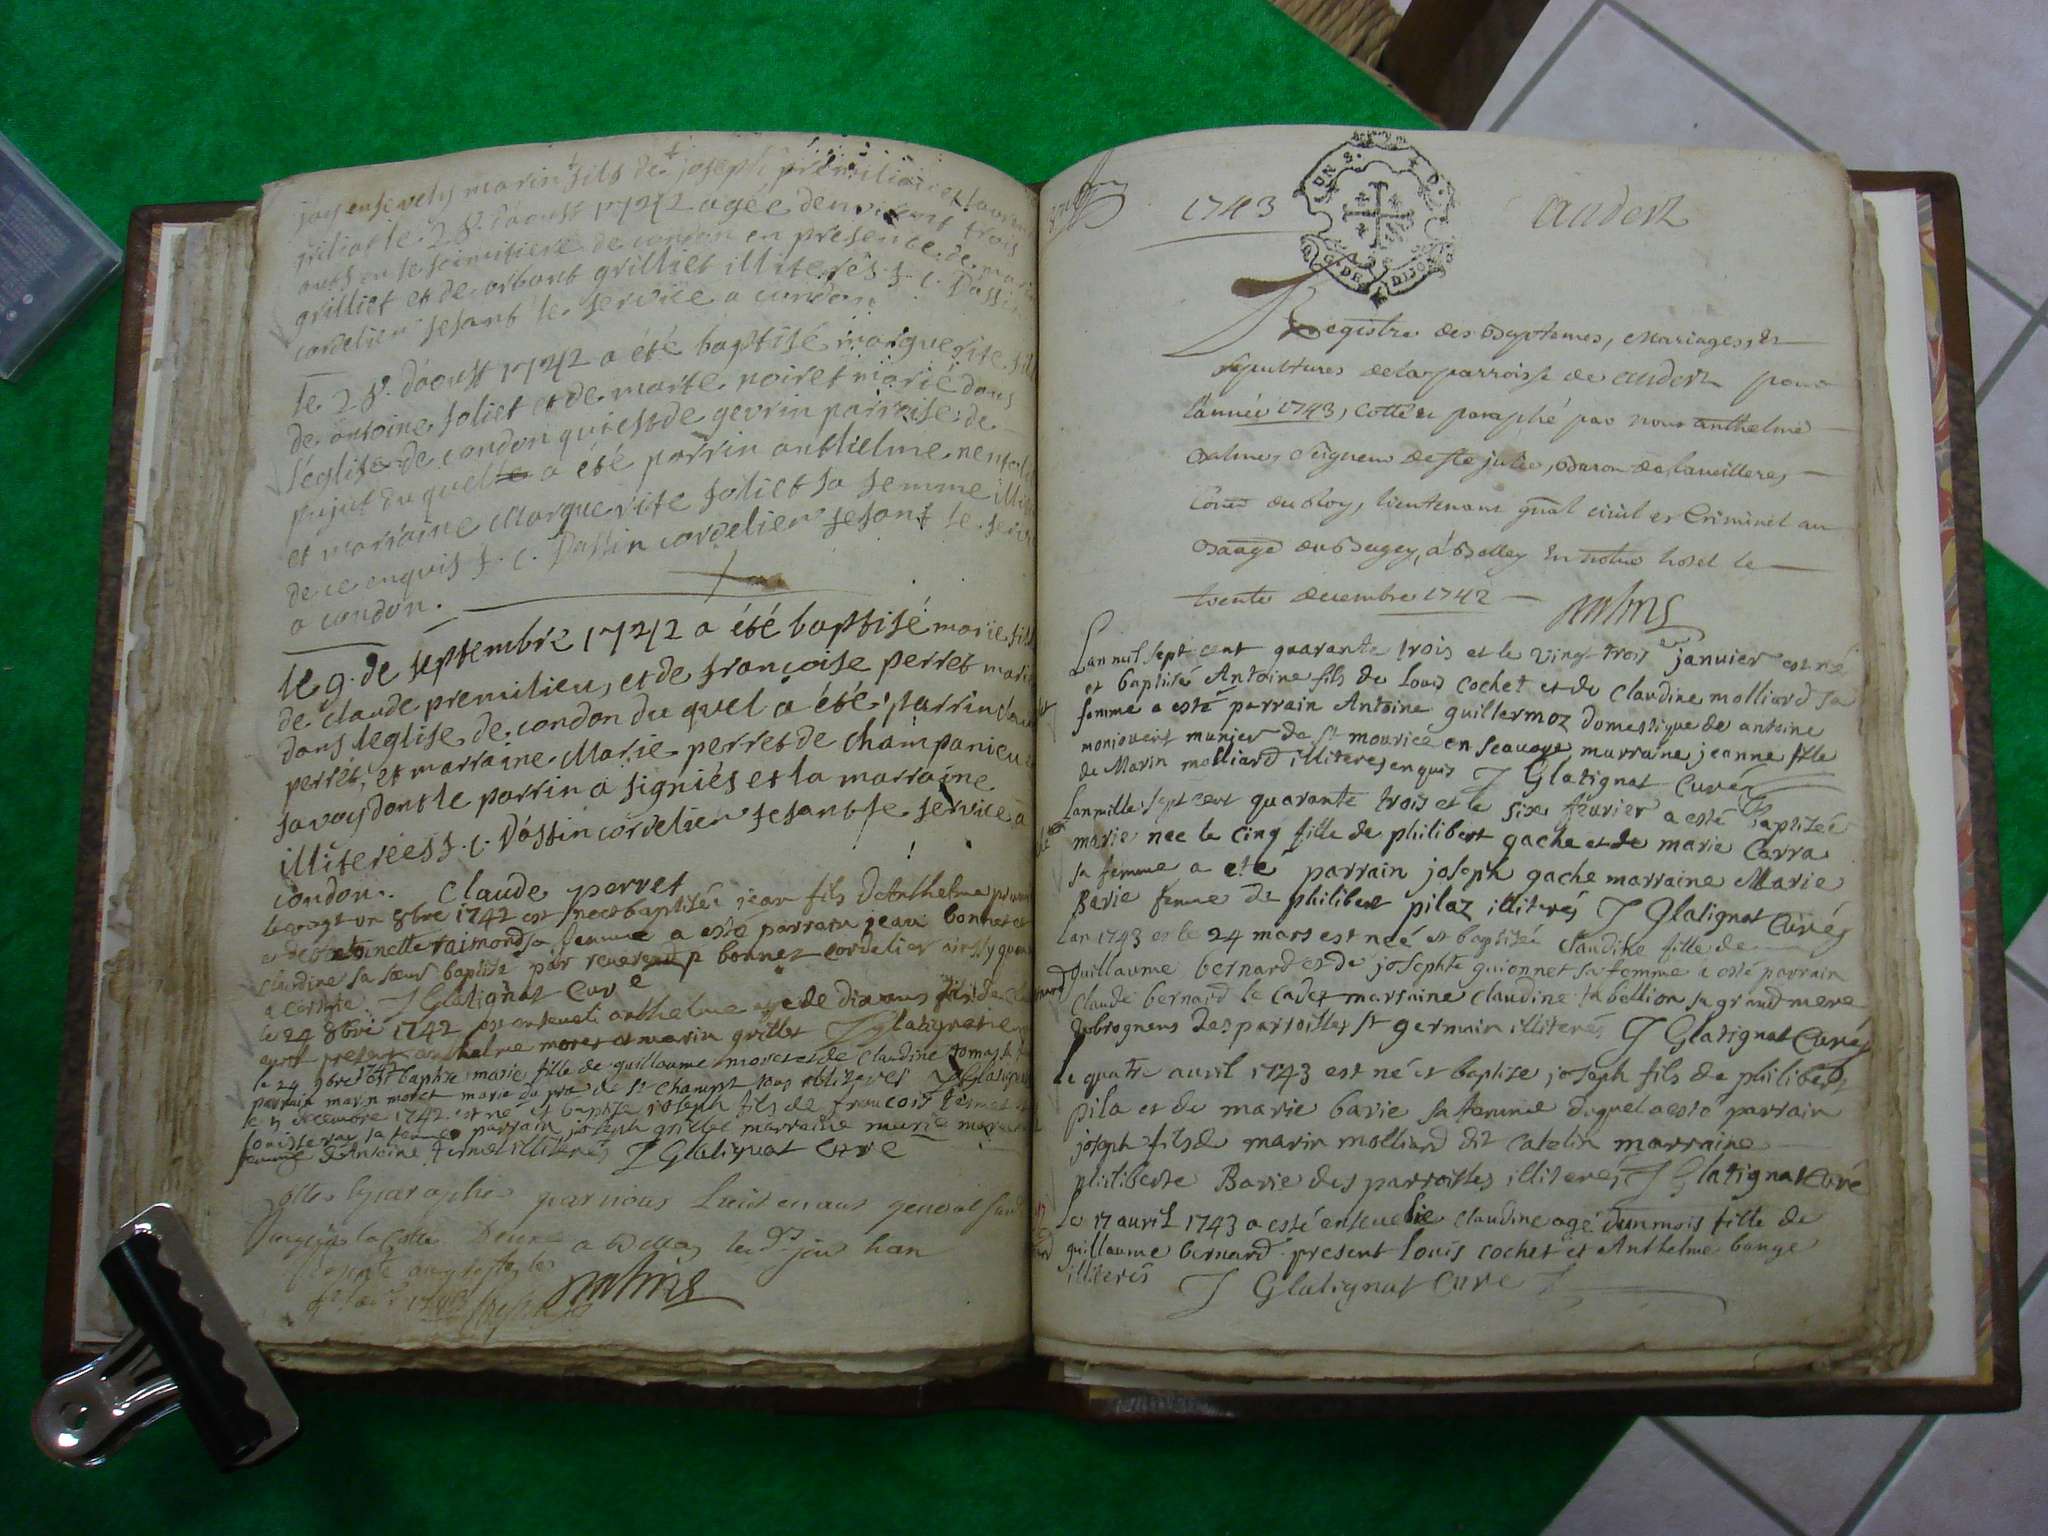 j'ay ensevely marin fils de joseph premilieu et
grilliat le 28 d'aoust 1742 agée d'environt trois
ants en le scimitiere de condon en presence de
grilliet et de grilliet illiterés f. c. Dassin
cordelier fesant le service a condon
le 28 d'aoust 1742 a été baptisé marguerite
de antoine joliet et de marte poiret marié dans
l'eglise de condon qui est de gevrin parroise de
pujut du quel a été parrin anthelme
et marraine marguerite joliet sa femme
de ce enquis f. c. Dassin cordelier fesant le
a condon.
le 9. de septembre 1742 a été baptisé marie
de claude premilieu, et de françoise perret
dans l'eglise de condon du quel a été parrin
perret, et marraine Marie perret de champanieu
savoy dont le parrin a signiés et la marraine
illiterées f. c. Dassin cordelier fesant le service a
condon. Claude perret
le vingt un 8bre 1742 est né et baptisé jean fils d'Anthelme
et d'etiennette raimond sa femme a esté parrain jean bonnet et
claudine sa sœur baptisé par reverend p bonnet cordelier
a certifié J Glatignat Curé
le 24 8bre 1742 est enseveli anthelme agé de dix ans fils de
present anthelme moret et marin grillet J Glatignat
le 24 9bre 1742 est baptisé marie fille de guillaume moret et de claudine
parrain marin moret marie du pra de st champt tous illiterés J Glatignat
le decembre 1742 est né et baptisé joseph fils de francois
sa femme parrain joseph grillet marraine marie
femme d'Antoine illiterés J Glatignat Curé
par nous Lieutenant general
1743
1743 andert
Registre des Baptemes, Mariages, et
sepultures de la parroisse de andert pour
l'année 1743, cotté et paraphé par nous anthelme
Balme Seigneur de ste julie, Baron de
du Roy, lieutenant gnal civil et Criminel au
Baage du Bugey, a Belley en notre hotel le
trente decembre 1742
L'an mil sept cent quarante trois et le vingt trois janvier est né
et baptisé Antoine fils de Louis Cochet et de Claudine molliard sa
femme a esté parrain Antoine guillermoz domestique de antoine
monjovent munier de st mourice en Scavoye marraine jeanne fille
de Marin molliard illiteres enquis J Glatignat Curé
L'an mille sept cent quarante trois et le six février a esté baptizée
marie nee le cinq fille de philibert gache et de marie Carra
sa femme a eté parrain joseph gache marraine Marie
Barie femme de philibert pilaz illiterés J Glatignat Curé
L'an 1743 et le 24 mars est neé et baptizée claudine fille de
guillaume bernard et de josephte guionnet sa femme a esté parrain
Claude bernard le cadet marraine claudine tabellion sa grand mere
de brognens des parroisses st germain illiterés J Glatignat Curé
Le quatre avril 1743 est né et baptize joseph fils de philibert
pila et de marie barie sa femme duquel a esté parrain
joseph fils de marin molliard dit catelin marraine
philiberte Barie des parroisses illiterés J Glatignat Curé
Le 17 avril 1743 a esté ensevelie claudine agé d'un mois fille de
guillaume bernard present Louis cochet et Anthelme bange
illiterés J Glatignat Curé